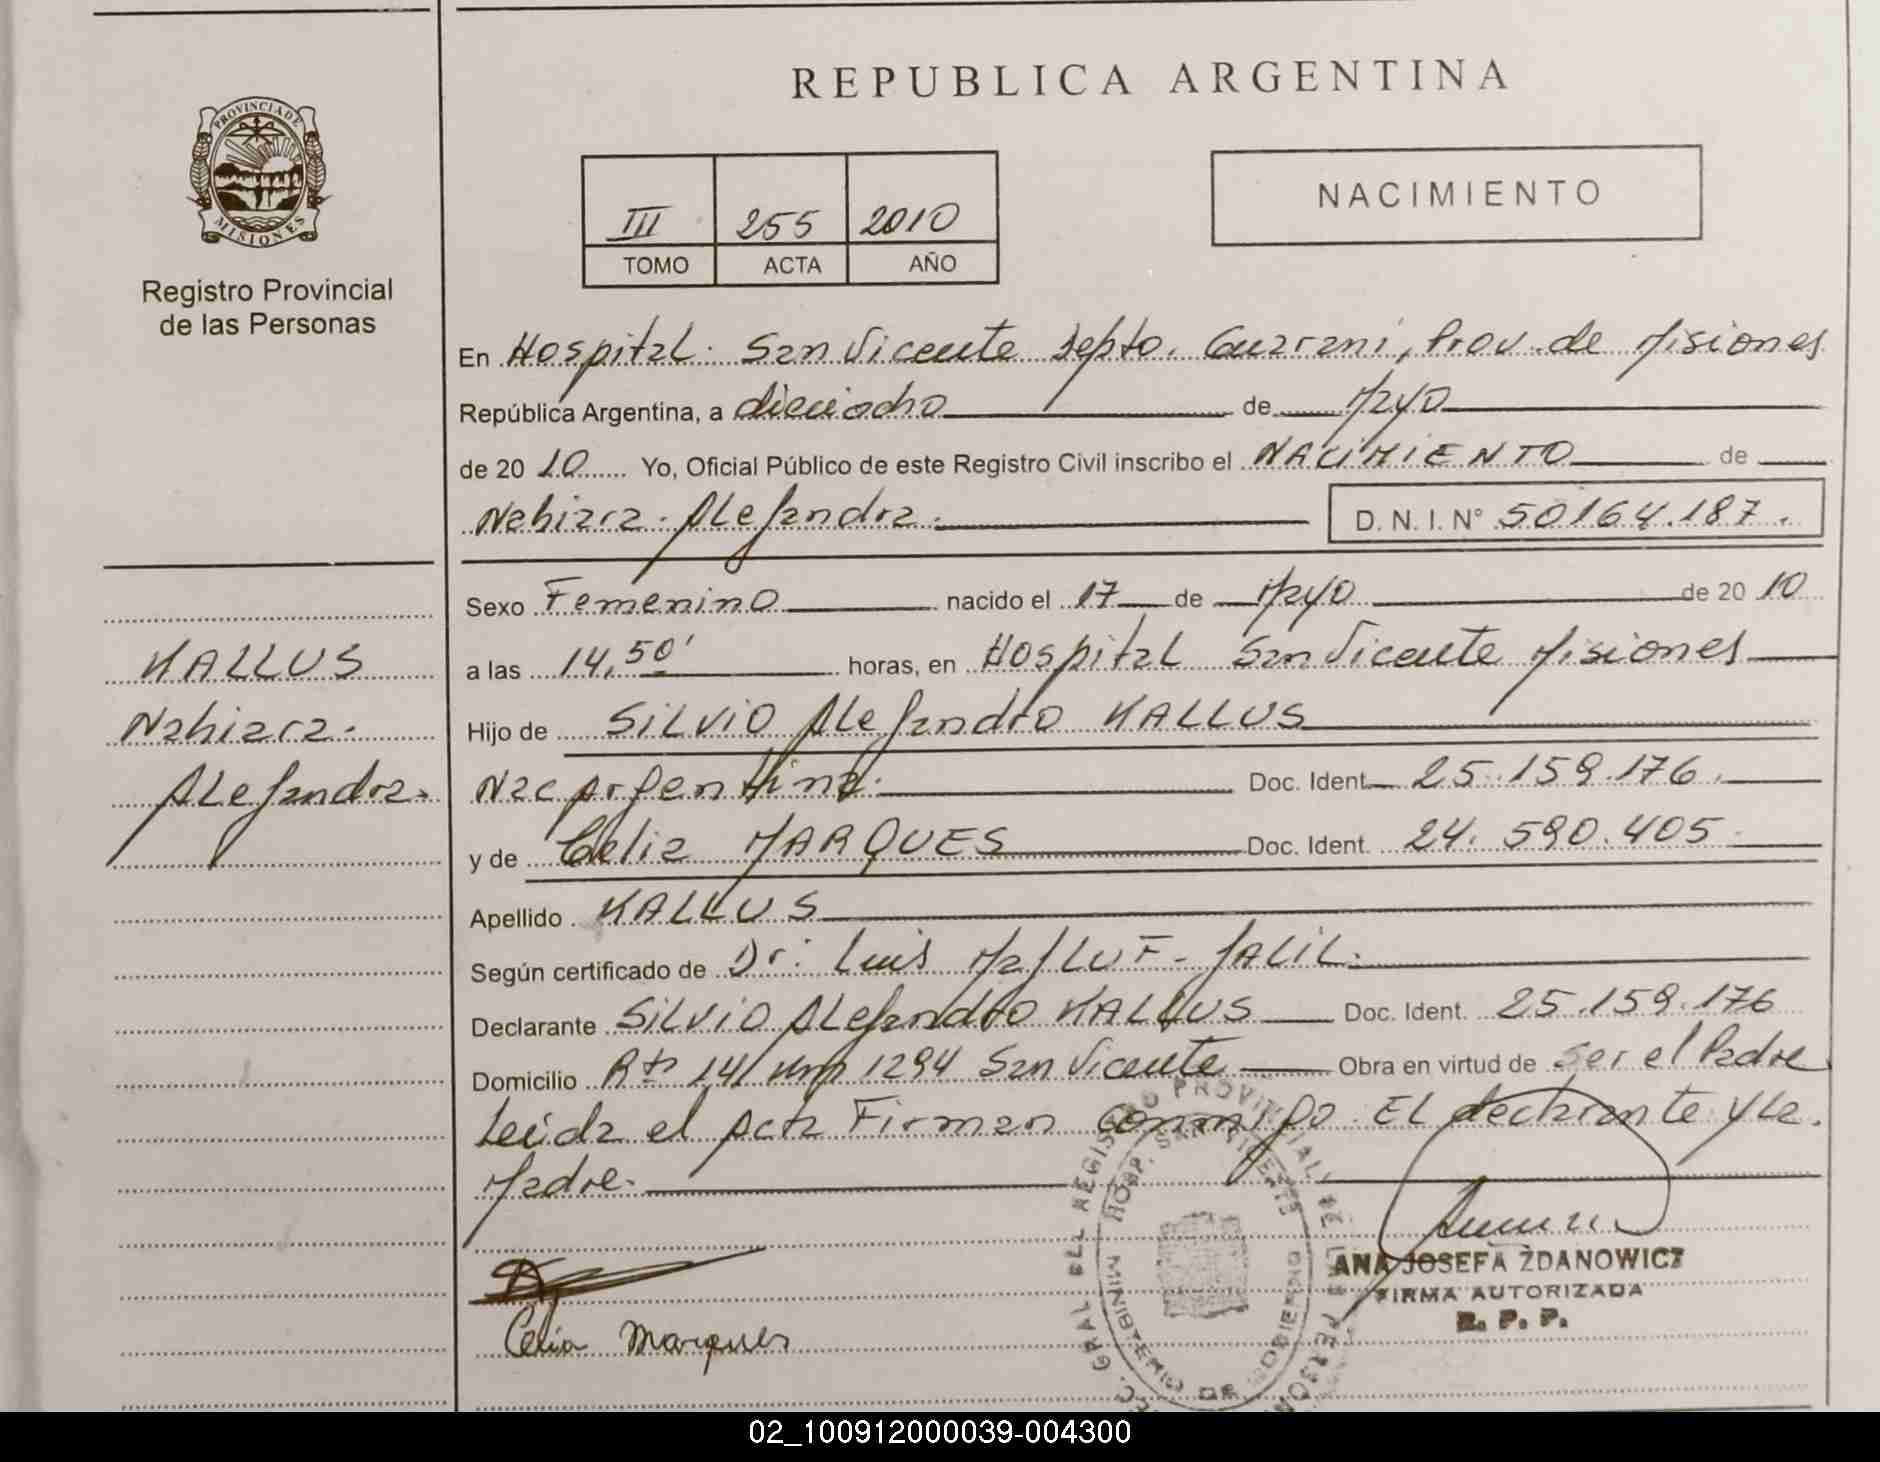 REPUBLICA ARGENTINA
PROVINCIA DE
MISIONES
Registro Provincial
de las Personas
III 255 2010
TOMO ACTA AÑO
NACIMIENTO
En Hospital San Vicente Depto. Guarani, Prov. de Misiones
República Argentina, a dieciocho de Mayo
de 2010 Yo, Oficial Público de este Registro Civil inscribo el NACIMIENTO de
Nahiara Alejandra. D. N. I. N° 50164.187.
Sexo Femenino nacido el 17 de Mayo de 2010
a las 14,50' horas, en Hospital San Vicente Misiones
Hijo de SiLViO ALejandro KALLUS
Nac Argentina. Doc. Ident. 25.159.176.
y de Celia MARQUES Doc. Ident. 24.590.405
Apellido KALLUS
Según certificado de Dr. Luis MaJLUF JALIL.
Declarante SiLViO ALejandro KALLUS Doc. Ident. 25.159.176
Domicilio Rta 14 Km 1294 San Vicente Obra en virtud de Ser el Padre
Leida el Acta Firman conmigo EL declarante y La
Madre.
KALLUS
Nahiara
ALejandra.
Celia Marques
ANA JOSEFA ZDANOWICZ
FIRMA AUTORIZADA
R. P. P.
GRAL DEL REGISTRO PROVINCIAL DE LAS PERSONAS
HOSP. SAN VICENTE
MINISTERIO DE GOBIERNO
02_100912000039-004300